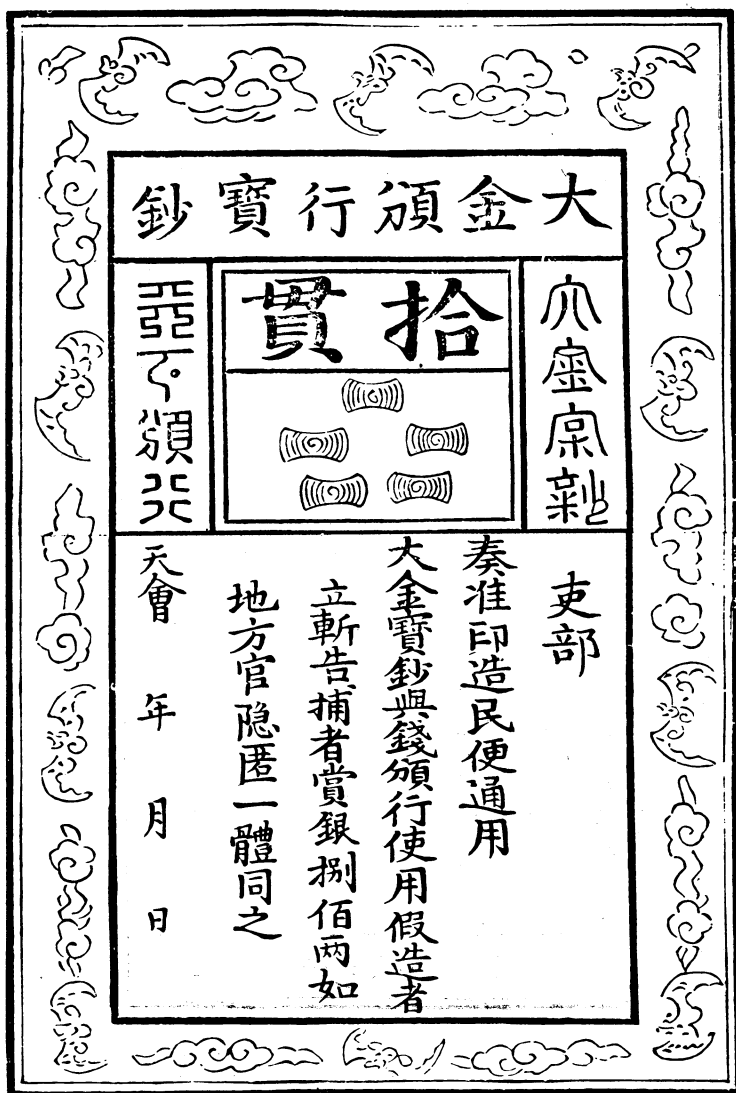 大金頒行寶鈔
拾貫
大金寶鈔
天下頒行
吏部
奏准印造民便通用
大金寶鈔與錢頒行使用假造者
立斬告捕者賞銀捌佰两如
地方官隐匿一體同之
天會 年 月 日